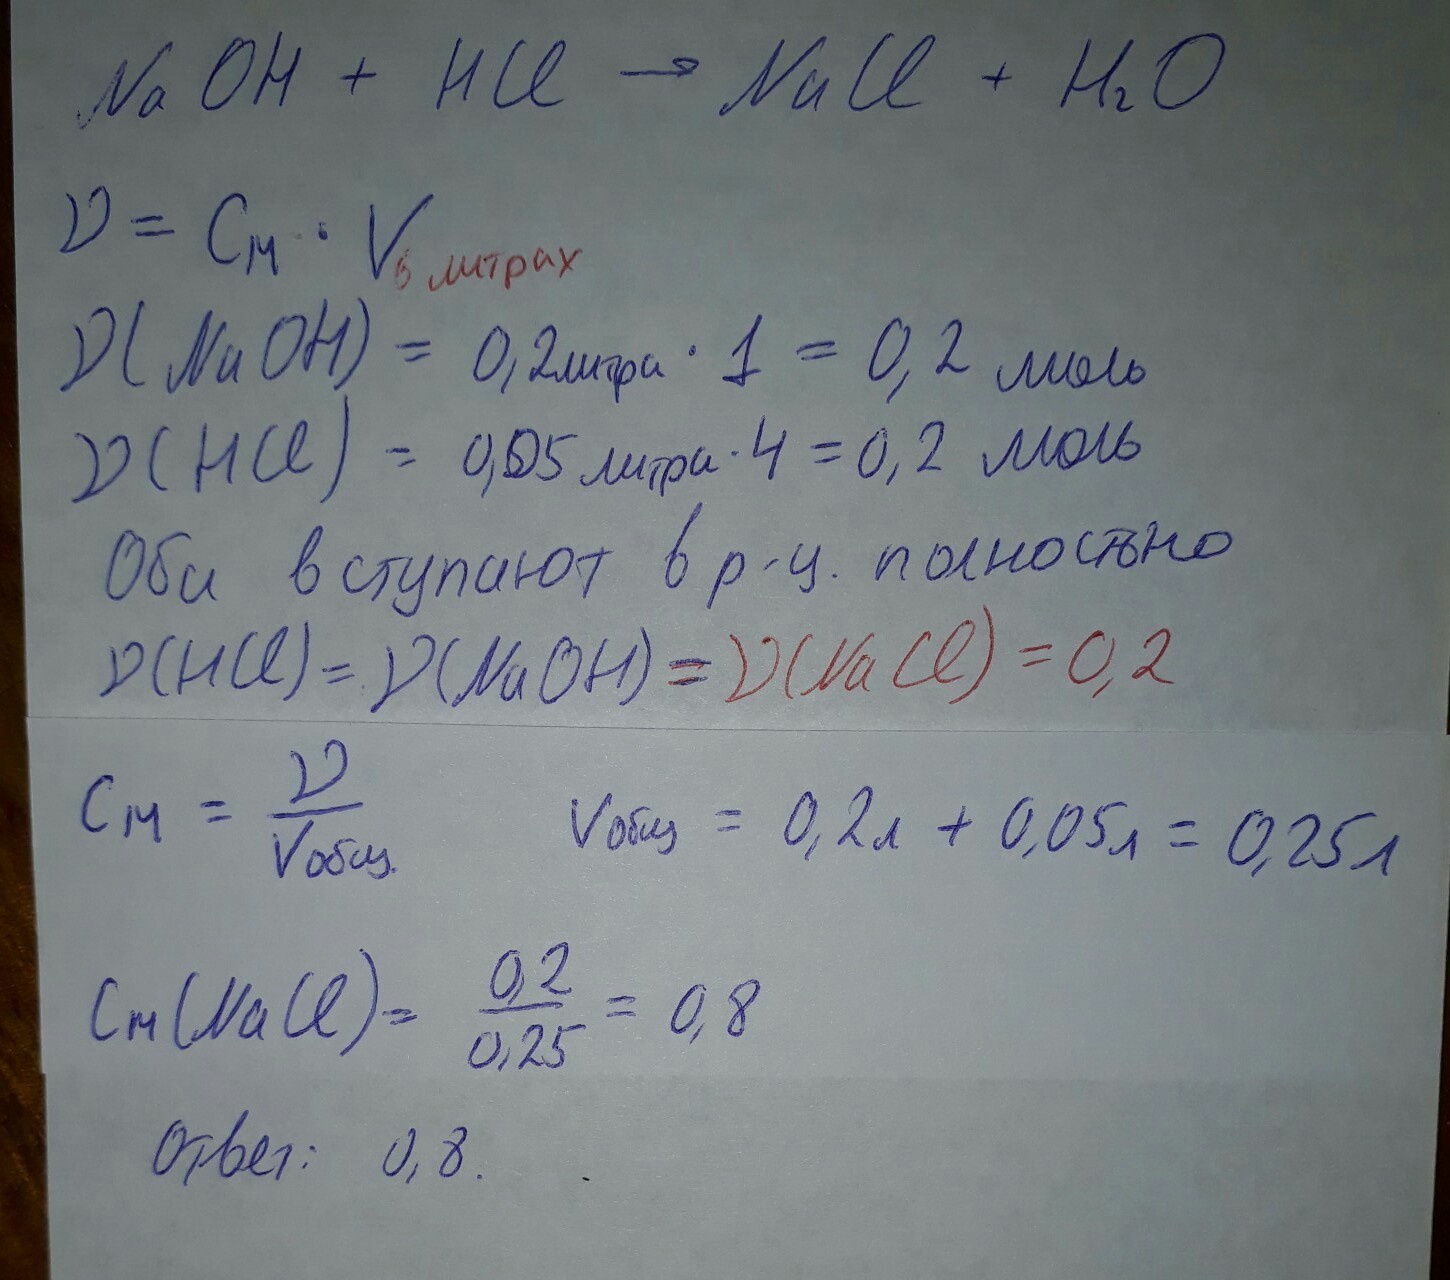 NaOH + HCl → NaCl + H₂O
ν = Cм · V в литрах
ν(NaOH) = 0,2литра · 1 = 0,2 моль
ν(HCl) = 0,05 литра · 4 = 0,2 моль
Оба вступают в р-ц. полностью
ν(HCl) = ν(NaOH) = ν(NaCl) = 0,2
Cм = ν / Vобщ. Vобщ = 0,2л + 0,05л = 0,25л
Cм(NaCl) = 0,2 / 0,25 = 0,8
Ответ: 0,8.